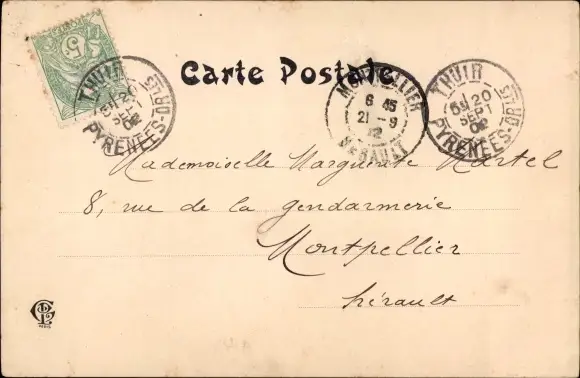 Carte Postale
THUIR
5E/20
SEPT
02
PYRÉNÉES-ORLES
MONTPELLIER
6 45
21 - 9
02
HÉRAULT
THUIR
5E/20
SEPT
02
PYRÉNÉES-ORLES
5
Mademoiselle Marguerite Martel
8, rue de la gendarmerie
Montpellier
hérault
PARIS